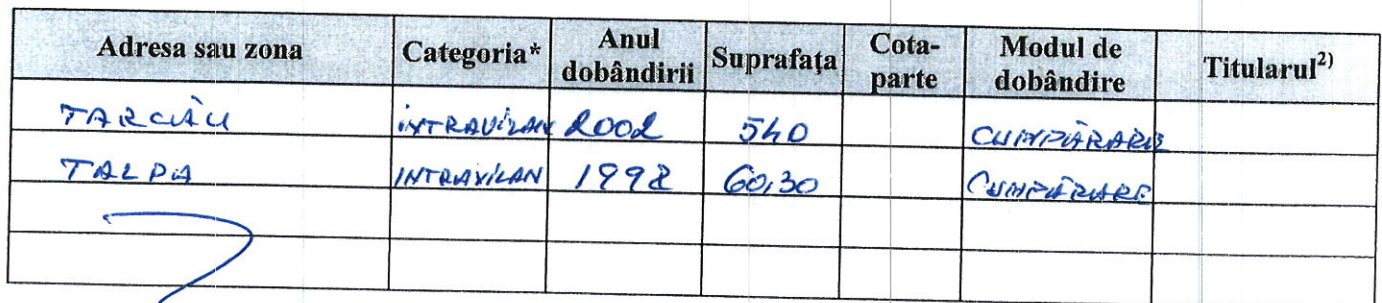 Adresa sau zona Categoria* Anul dobândirii Suprafaţa Cota-parte Modul de dobândire Titularul²⁾
TARCĂU INTRAVILAN 2002 540 CUMPĂRARE
TALPA INTRAVILAN 1998 60,30 CUMPĂRARE